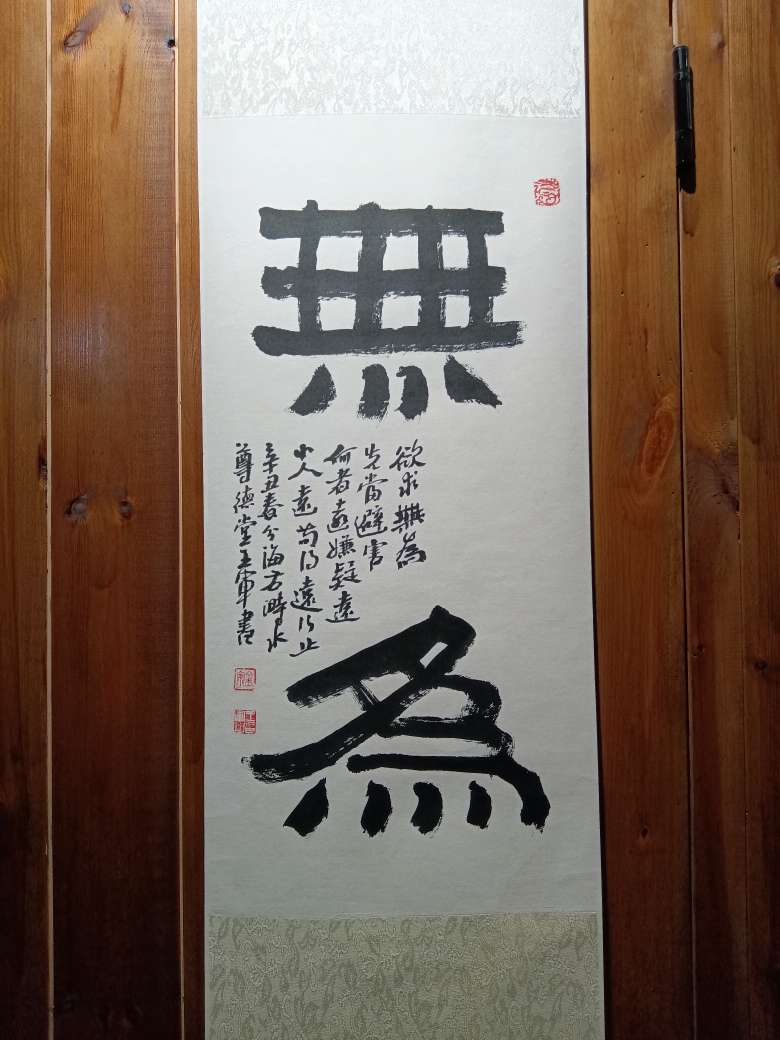 無
為
欲求無為
先當避害
何者遠嫌疑遠
小人遠苟得遠行止
辛丑春分海右濟水
尊德堂王軍書